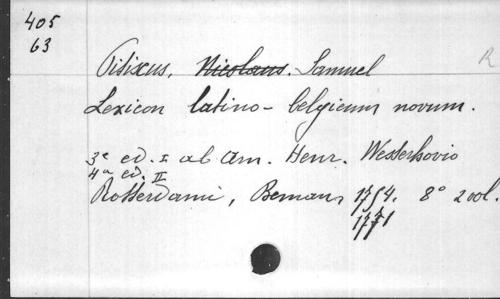 405
63
R
Pitiscus, Nicolaus. Samuel
Lexicon latino-belgicum novum.
3ª ed. I ab Arn. Henr. Westerhovio
4ª ed. II
Rotterdami, Beman, 1754. 8° 2 vol.
1771